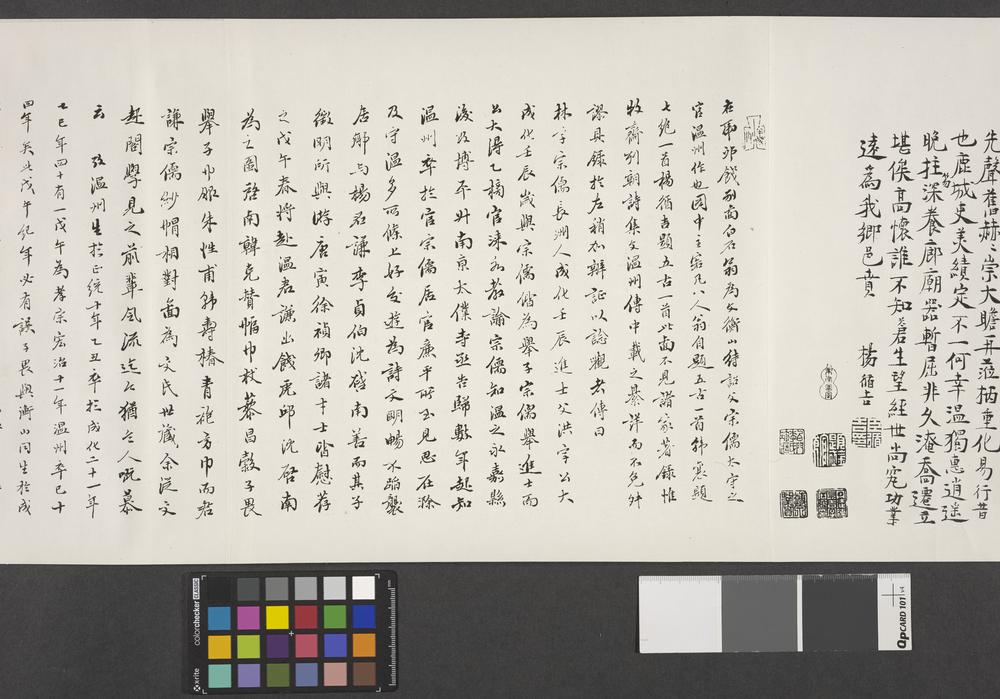 先聲舊赫〻崇大瞻再蒞柄重化易行昔
也虛城史美績定不一何幸溫獨惠逍遙
晚拄深養廊廟器暫屈非久淹喬遷立
堪俟高懷誰不知蒼生望經世尚究功業
遠為我鄉邑賁 楊循吉
官溫州作也圖中主客凡八人翁自題五古一首韓襄題
七絕一首楊循吉題五古一首此圖不見諸家著錄惟
牧齋列朝詩集文溫州傳中載之綦詳而不免舛
謬具錄於左稍加辨証以諗觀者傳曰
林字宗儒長洲人成化壬辰進士父洪字公大
成化壬辰歲與宗儒偕為舉子宗儒舉進士而
公大得乙榜官淶水教諭宗儒知溫之永嘉縣
後改博平升南京太僕寺丞告歸數年起知
溫州卒於官宗儒居官廉平所至見思在滁
及守溫多所條上好交遊為詩文明暢不蹈襲
居鄉与楊君謙李貞伯沈啓南善而其子
徵明所與游唐寅徐禎卿諸才士皆慰薦
之戊午春將赴溫君謙出餞虎邱沈啓南
為之圖啓南韓克贊幅巾杖藜昌穀子畏
舉子巾服朱性甫韓壽椿青袍方巾而君
謙宗儒紗帽相對面為文氏世藏余從文
起閣學見之前輩風流迄今猶令人嘅慕
云 攷溫州生於正統十年乙丑卒於成化二十一年
乙巳年四十有一戊午為孝宗宏治十一年溫州卒已十
四年矣此戊午紀年必有誤子畏與衡山同生於成